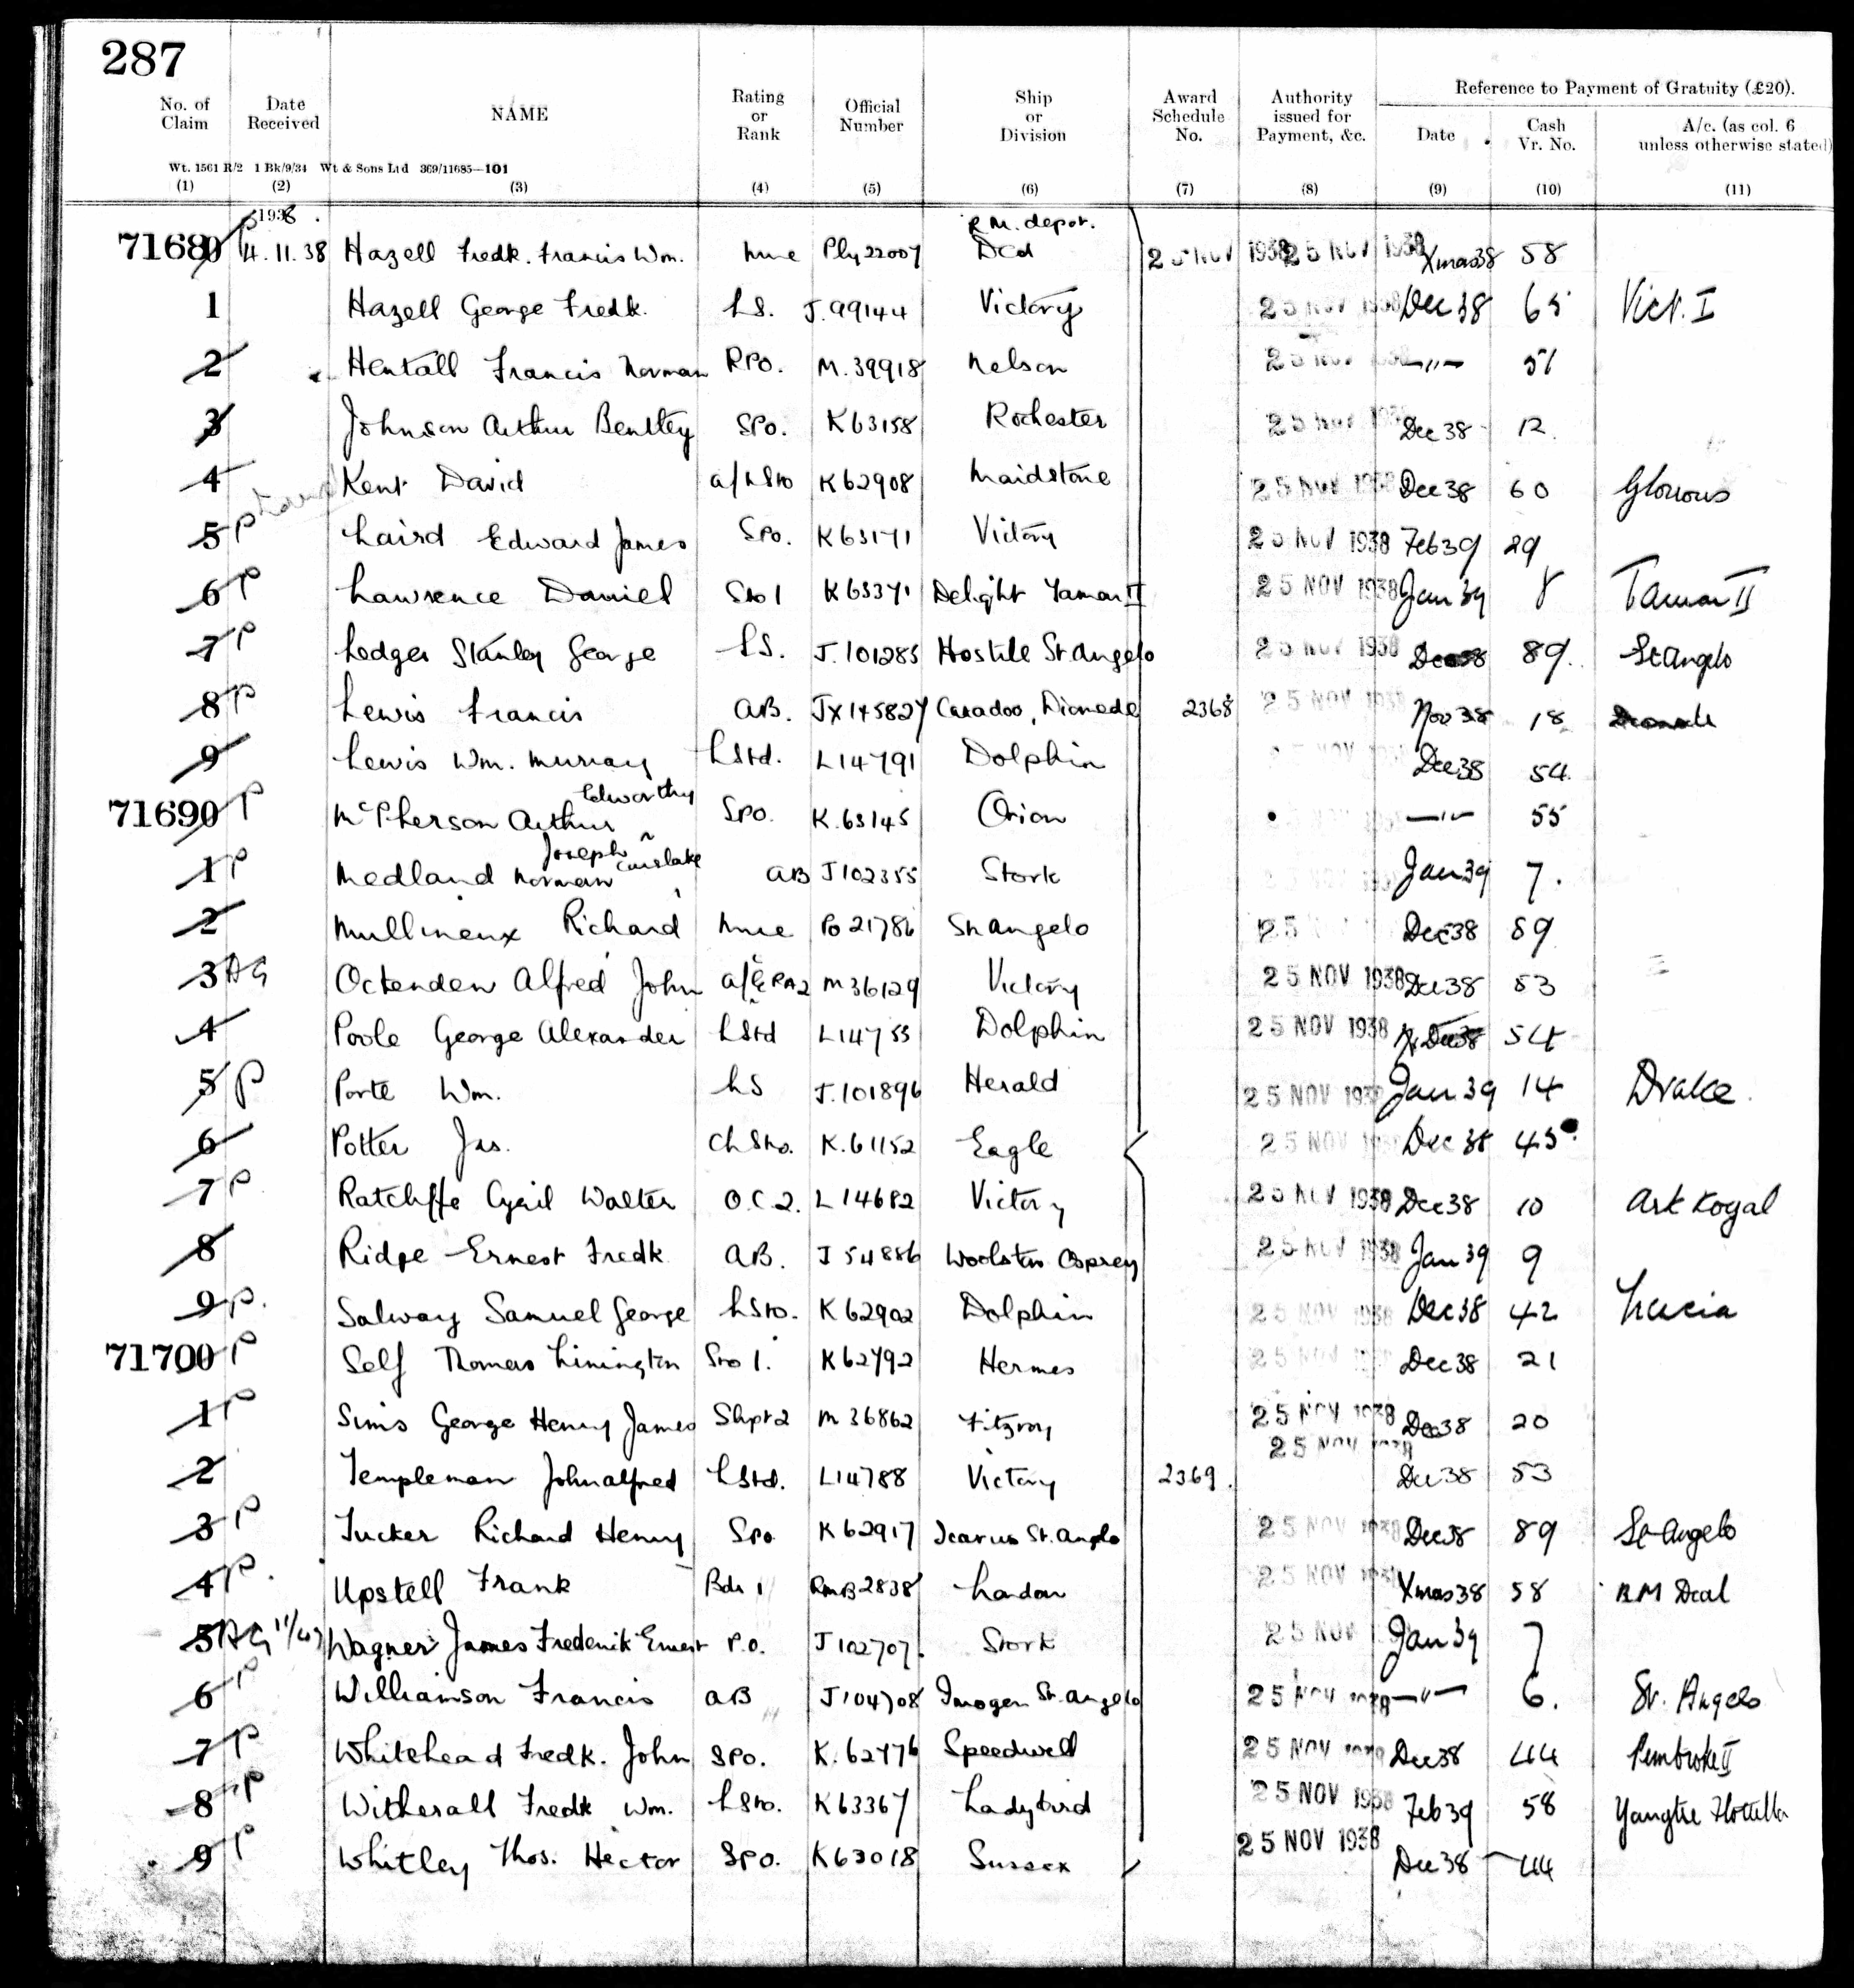 287
No. of Claim Date Received NAME Rating or Rank Official Number Ship or Division Award Schedule No. Authority issued for Payment, &c. Reference to Payment of Gratuity (£20).
Date Cash Vr. No. A/c. (as col. 6 unless otherwise stated)
Wt. 1561 R/2 1 Bk/9/34 Wt & Sons Ltd 369/11685—101
(1) (2) (3) (4) (5) (6) (7) (8) (9) (10) (11)
1938 R.M. depot.
71680 14.11.38 Hazell Fredk. Francis Wm. Mne Ply 22007 Deal 25 NOV 1938 25 NOV 1938 Xmas 38 58
1 Hazell George Fredk. LS. J.99144 Victory 25 NOV 1938 Dec 38 65 Vict. I
2 Hentall Francis Norman RPO. M.39918 Nelson 25 NOV 1938 —"— 51
3 Johnson Arthur Bentley SPO. K63158 Rochester 25 NOV 1938 Dec 38 12.
4 Kent David a/LSto K62908 Maidstone 25 NOV 1938 Dec 38 60 Glorious
5 P Laird Edward James SPO. K63171 Victory 25 NOV 1938 Feb 39 29
6 P Lawrence Daniel Sto 1 K63371 Delight Tamar II 25 NOV 1938 Jan 39 8 Tamar II
7 P Ledger Stanley George LS. J.101285 Hostile St. Angelo 25 NOV 1938 Dec 38 89. St Angelo
8 P Lewis Francis AB. JX145827 Caradoc, Diomede 2368 25 NOV 1938 Nov 38 18
9 Lewis Wm. Murray LStd. L14791 Dolphin NOV Dec 38 54.
Edworthy
71690 P McPherson Arthur SPO. K.63145 Orion —"— 55
Joseph Carslake
1 P Medland Norman AB J102355 Stork NOV Jan 39 7.
2 Mullineux Richard Mne Po 21786 St Angelo 25 Dec 38 89
3 AG Octenden Alfred John a/ERA2 M36129 Victory 25 NOV 1938 Dec 38 53
4 Poole George Alexander LStd L14755 Dolphin 25 NOV 1938 Dec 38 54
5 P Porte Wm. LS J.101896 Herald 25 NOV 1938 Jan 39 14 Drake.
6 Potter Jas. Ch Sto. K.61152 Eagle 25 NOV 1938 Dec 38 45
7 P Ratcliffe Cyril Walter O.C.2. L14682 Victory 25 NOV 1938 Dec 38 10 Ark Royal
8 Ridge Ernest Fredk AB. J54886 Woolston Osprey 25 NOV 1938 Jan 39 9
9 P. Salway Samuel George LSto. K62902 Dolphin 25 NOV 1938 Dec 38 42 Lucia
71700 P Self Thomas Linington Sto 1. K62792 Hermes 25 NOV Dec 38 21
1 P Sims George Henry James Shpt 2 M36862 Fitzroy 25 NOV 1938 Dec 38 20
2 Templeman John Alfred LStd. L14788 Victory 2369. 25 NOV 1938 Dec 38 53
3 P Tucker Richard Henry SPO K62917 Icarus St. Angelo 25 NOV 1938 Dec 38 89 St Angelo
4 P. Upstell Frank Bdr 1 RMB 2838 London 25 NOV 1938 Xmas 38 58 RM Deal
5 AG Wagner James Frederick Ernest P.O. J102707. Stork 25 NOV Jan 39 7
6 P Williamson Francis AB J104708 Imogen St. Angelo 25 NOV 1938 —"— 6. St. Angelo
7 P Whitehead Fredk. John SPO. K.62476 Speedwell 25 NOV 1938 Dec 38 44 Pembroke II
8 P Witherall Fredk Wm. LSto. K63367 Ladybird 25 NOV 1938 Feb 39 58 Yangtse Flotilla
9 P Whitley Thos. Hector SPO. K63018 Sussex 25 NOV 1938 Dec 38 44